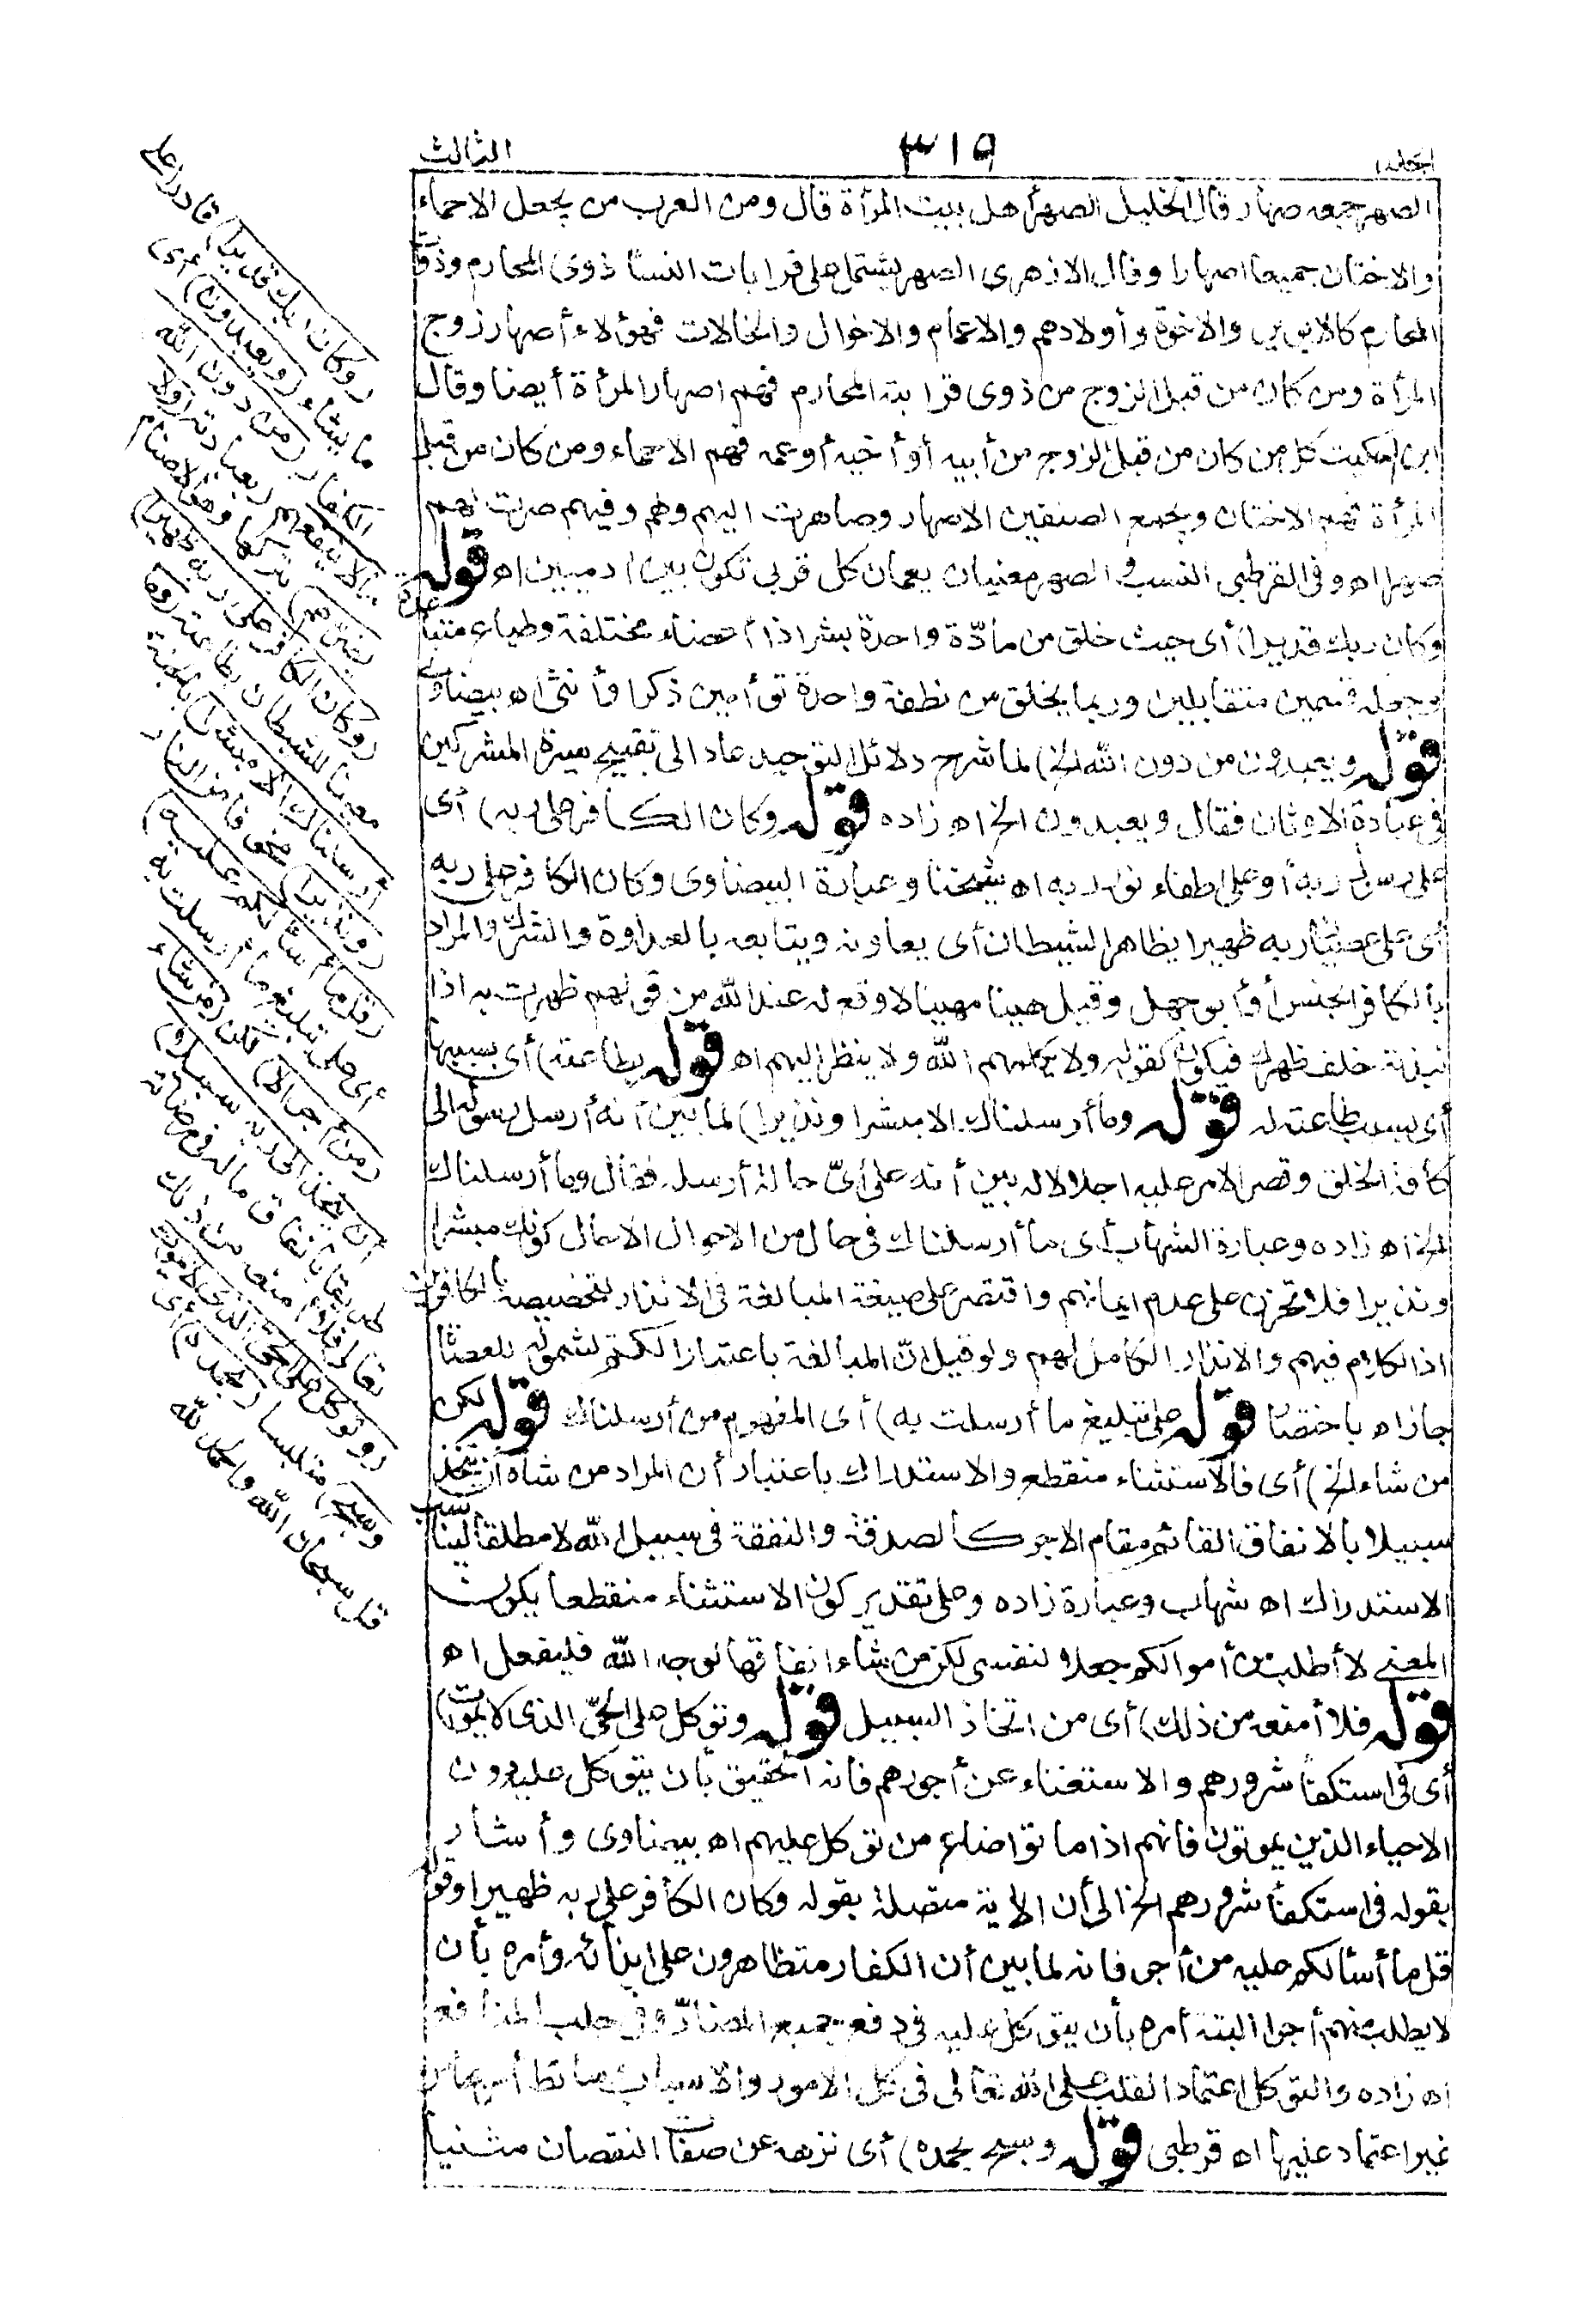 الجلد ٣١٩ الثالث
الصهر جمعه صهار قال الخليل الصهر أهل بيت المرأة قال ومن العرب من يجعل الاحماء
والاختان جميعا اصهارا وقال الازهرى الصهر يشتمل على قرابات النسا ذوى المحارم وذوات
المحارم كالابوين والاخوة وأولادهم والاعمام والاخوال والخالات فهؤلاء أصهار زوج
المرأة ومن كان من قبل الزوج من ذوى قرابته المحارم فهم اصهار المرأة أيضا وقال
ابن السكيت كل من كان من قبل الزوج من أبيه أو أخيه أو عمه فهم الاحماء ومن كان من قبل
المرأة فهم الاختان ويجمع الصنفين الاصهار وصاهرت اليهم ولهم وفيهم صرت لهم
صهرا اه وفى القرطبى النسب والصهر معنيان يعمان كل قربى تكون بين ادميين اه قوله
وكان ربك قديرا) أى حيث خلق من مادّة واحدة بشرا ذا أعضاء مختلفة وطباع متباعدة
وجعله قسمين متقابلين وربما يخلق من نطفة واحدة توأمين ذكرا وأنثى اه بيضاوى
قوله ويعبدون من دون الله الخ) لما شرح دلائل التوحيد عاد الى تقبيح سيرة المشركين
فى عبادة الاوثان فقال ويعبدون الخ اه زاده قوله وكان الكافر على ربه) أى
على رسول ربه أو على اطفاء نور ربه اه شيخنا وعبارة البيضاوى وكان الكافر على ربه
أى على عصيان ربه ظهيرا يظاهر الشيطان أى يعاونه ويتابعه بالعداوة والشرك والمراد
بالكافر الجنس أو أبو جهل وقيل هينا مهينا لا وقع له عند الله من قولهم ظهرت به اذا
نبذته خلف ظهرك فيكون كقوله ولا يكلمهم الله ولا ينظر اليهم اه قوله بطاعته) أى بسببها
أى بسبب طاعته له قوله وما أرسلناك الا مبشرا ونذيرا) لما بين أنه أرسل رسوله الى
كافة الخلق وقصر الامر عليه اجلالا له بين أنه على أىّ حالة أرسله فقال وما أرسلناك
الخ اه زاده وعبارة الشهاب أى ما أرسلناك فى حال من الاحوال الا حال كونك مبشرا
ونذيرا فلا تحزن على عدم ايمانهم واقتصر على صيغة المبالغة فى الانذار لتخصيصه بالكافرين
اذ الكلام فيهم والانذار الكامل لهم ولو قيل انّ المبالغة باعتبار الكم لشموله للعصاة
جاز اه باختصا قوله على تبليغ ما أرسلت به) أى المفهوم من أرسلناك قوله لكن
من شاء الخ) أى فالاستثناء منقطع والاستدراك باعتبار أن المراد من شاء أن يتخذ
سبيلا بالانفاق القائم مقام الاجر كالصدقة والنفقة فى سبيل الله لا مطلقا ليناسب
الاستدراك اه شهاب وعبارة زاده وعلى تقدير كون الاستثناء منقطعا يكون
المعنى لا أطلب من أموالكم جعلا لنفسى لكن من شاء انفاقها لوجه الله فليفعل اه
قوله فلا أمنعه من ذلك) أى من اتخاذ السبيل قوله وتوكل على الحىّ الذى لا يموت)
أى فى استكفا شرورهم والاستغناء عن أجورهم فانه الحقيق بأن يتوكل عليه دون
الاحياء الذين يموتون فانهم اذا ماتوا ضاع من توكل عليهم اه بيضاوى وأشار
بقوله فى استكفا شرورهم الخ الى أن الاية متصلة بقوله وكان الكافر على ربه ظهيرا وقوله
قل ما أسألكم عليه من أجر فانه لما بين أن الكفار متظاهرون على ايذائه وأمره بأن
لا يطلب منهم أجرا البتة أمره بأن يتوكل عليه فى دفع جميع المضارّ وفى جلب المنافع
اه زاده والتوكل اعتماد القلب على الله تعالى فى كل الامور والاسباب وسائط أمر بها من
غير اعتماد عليها اه قرطبى قوله وسبح بحمده) أى نزهه عن صفات النقصان مثنيا
(وكان ربك قديرا) قادرا على
ما يشاء (ويعبدون) أى
الكفار (من دون الله
ما لا ينفعهم) بعبادته (ولا
يضرهم) بتركها وهو الاصنام
(وكان الكافر على ربه ظهيرا)
معينا للشيطان بطاعته (وما
أرسلناك الا مبشرا) بالجنة
(ونذيرا) مخوفا من النار
(قل ما أسألكم عليه)
أى على تبليغ ما أرسلت به
(من أجر الا) لكن (من شاء
أن يتخذ الى ربه سبيلا)
طريقا بانفاق ماله فى مرضاته
تعالى فلا أمنعه من ذلك
(وتوكل على الحى الذى لا يموت
وسبح) متلبسا (بحمده) أى
قل سبحان الله والحمد لله